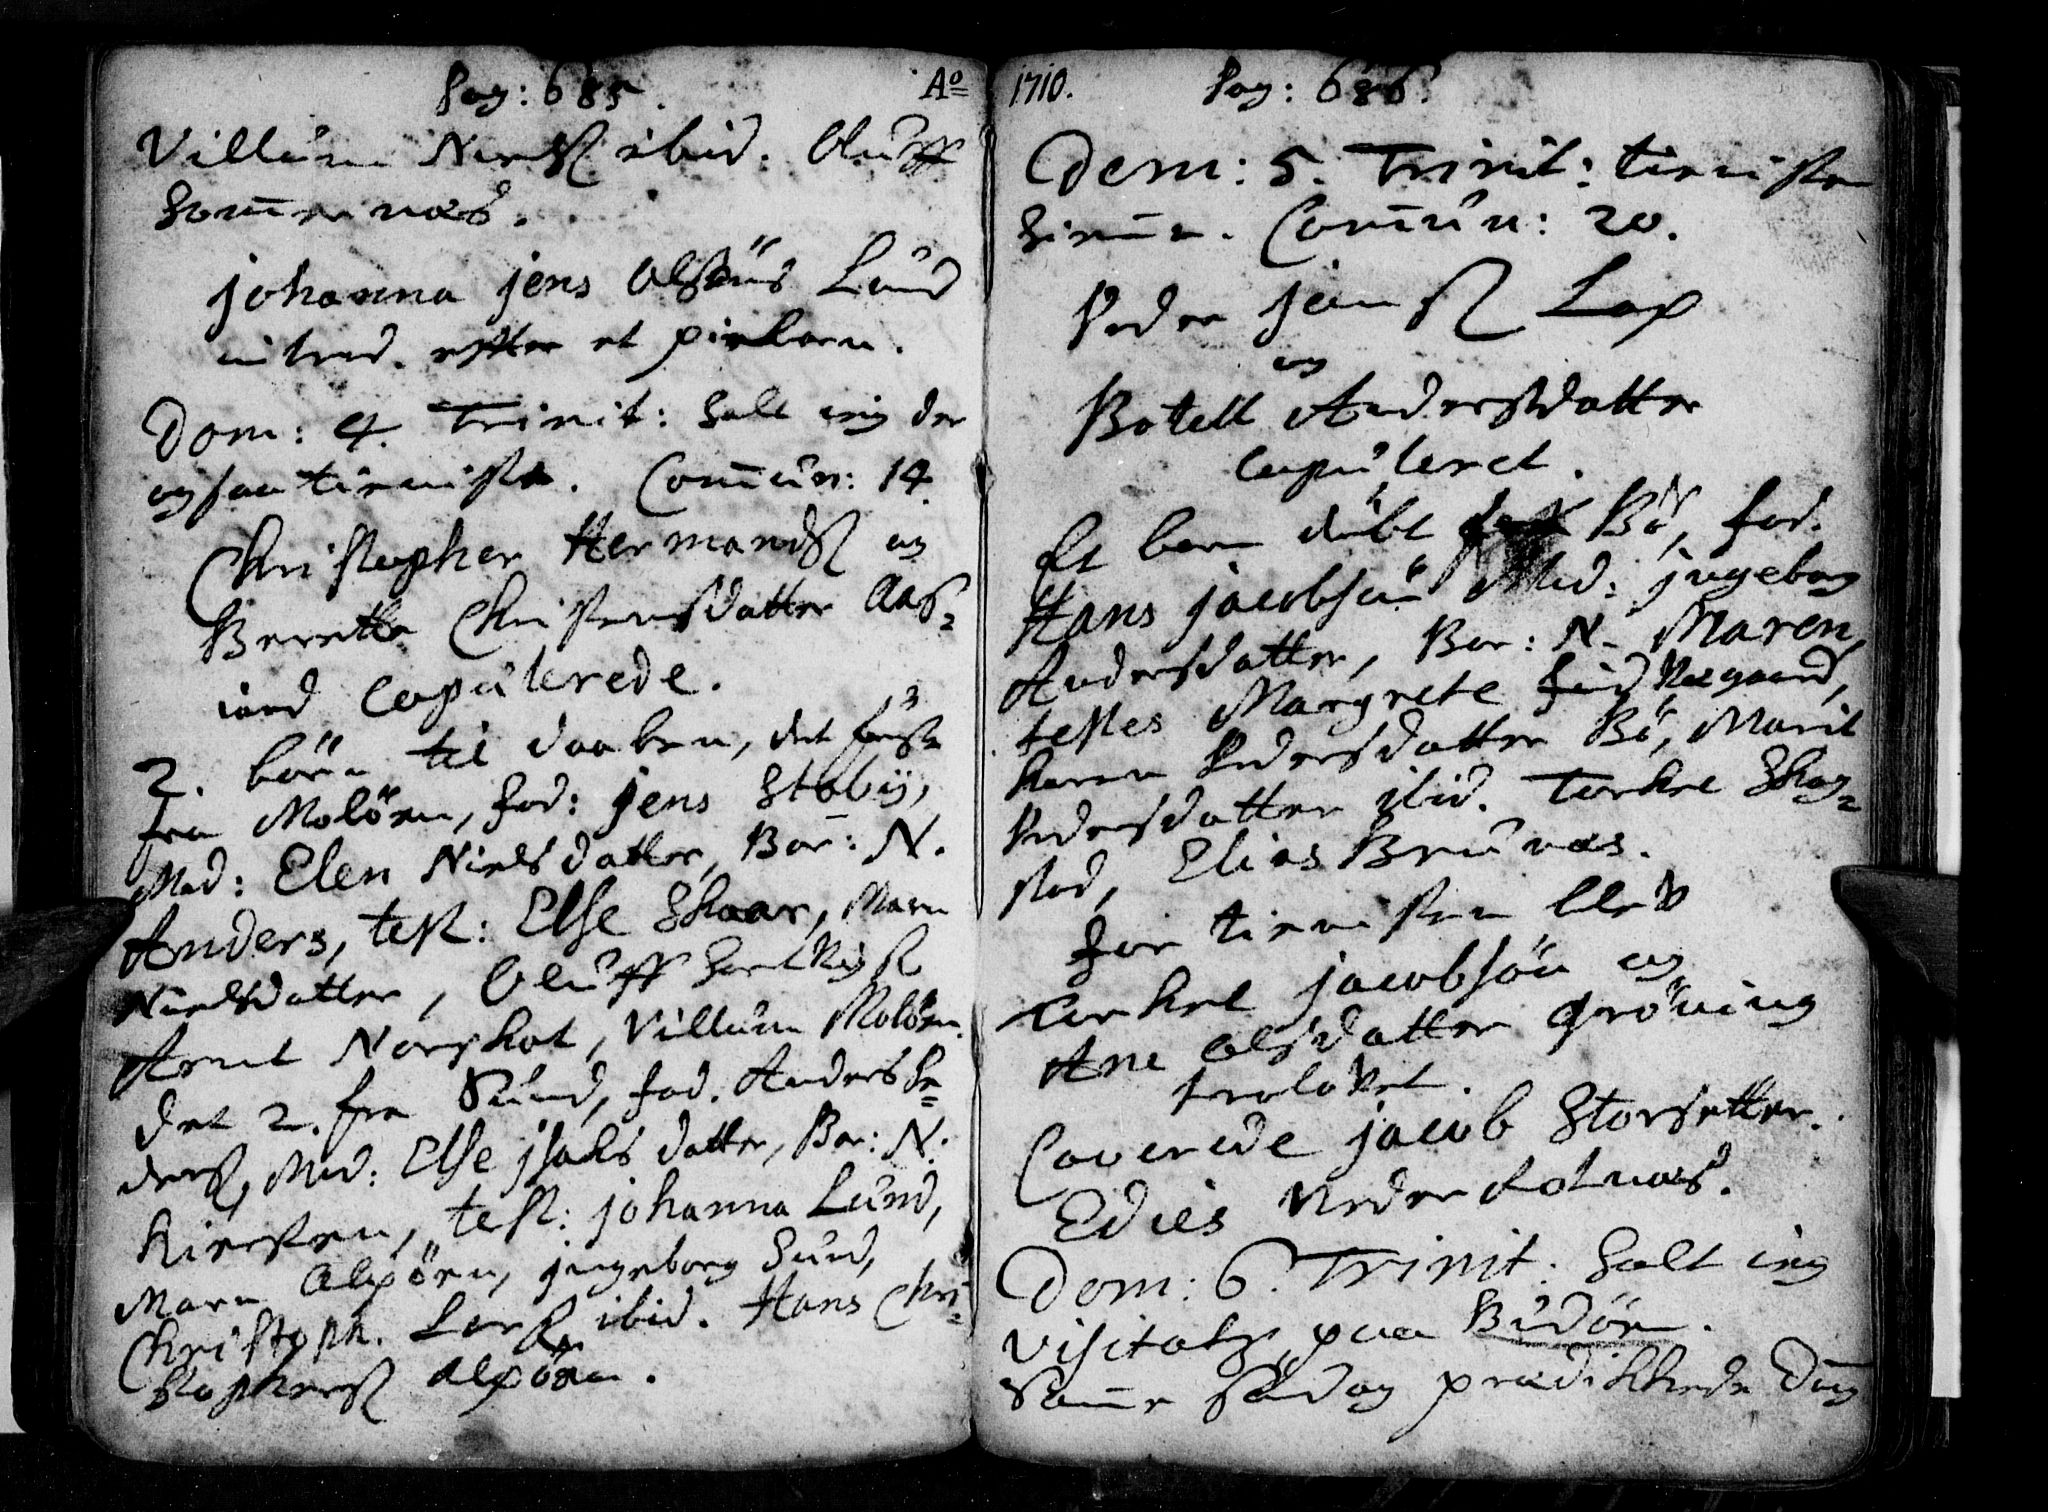 Pag: 685. Aº
Villum Nielsß ibid. Oluff
Hommernæs.
Johanna Jens Olsöns Lund
introd. effter et pigebarn.
Dom: 4. Trinit: holt ieg der
ogsaa tienniste. Com̄un: 14.
Christopher Hermandß og
Berette Christensdatter Aas=
iord Copulerede.
2. börn til daaben, det förste
fra Molöen, fad: Jens Stabij,
Mod: Elen Nielsdatter, Bar: N.
Anders, test: Else Skaar, Marn
Nielsdatter, Oluff
Arnt Norskot, Villum Molöen.
det 2. fra Sund, fad. Anders
Mod: Else Jsachs datter, Bar: N.
Kiersten, test: Johanna Lund,
Marn Alpöen, Jngeborg Sund,
Christoph. Larß ibid. Hans Chri=
stophersß Alpöen.
1710. Pag: 686.
Dom: 5. Trinit: tienisten
hiem̄e. Com̄un: 20.
Peder Jenß Lap
og
Botell Andersdatter
Copuleret.
Et barn döbt fra Bö, fad.
Hans Jacobsön Mod: Jngeborg
Andersdatter, Bar: N. Maren,
testes Margrete Næsgaard,
Karen Pedersdatter Bö, Marit
Pedersdatter ibid. Torkel Skog=
stad, Elias Brunæs.
For tienisten blev
Torkel Jacobsön og
Ane Olsdatter Gröning
trolovet.
Caverede Jacob Storsetter.
Edies Neder Folnæs.
Dom: 6. Trinit: holt ieg
Visitatz paa Budöen.
Sam̄e Söndag prædikkede